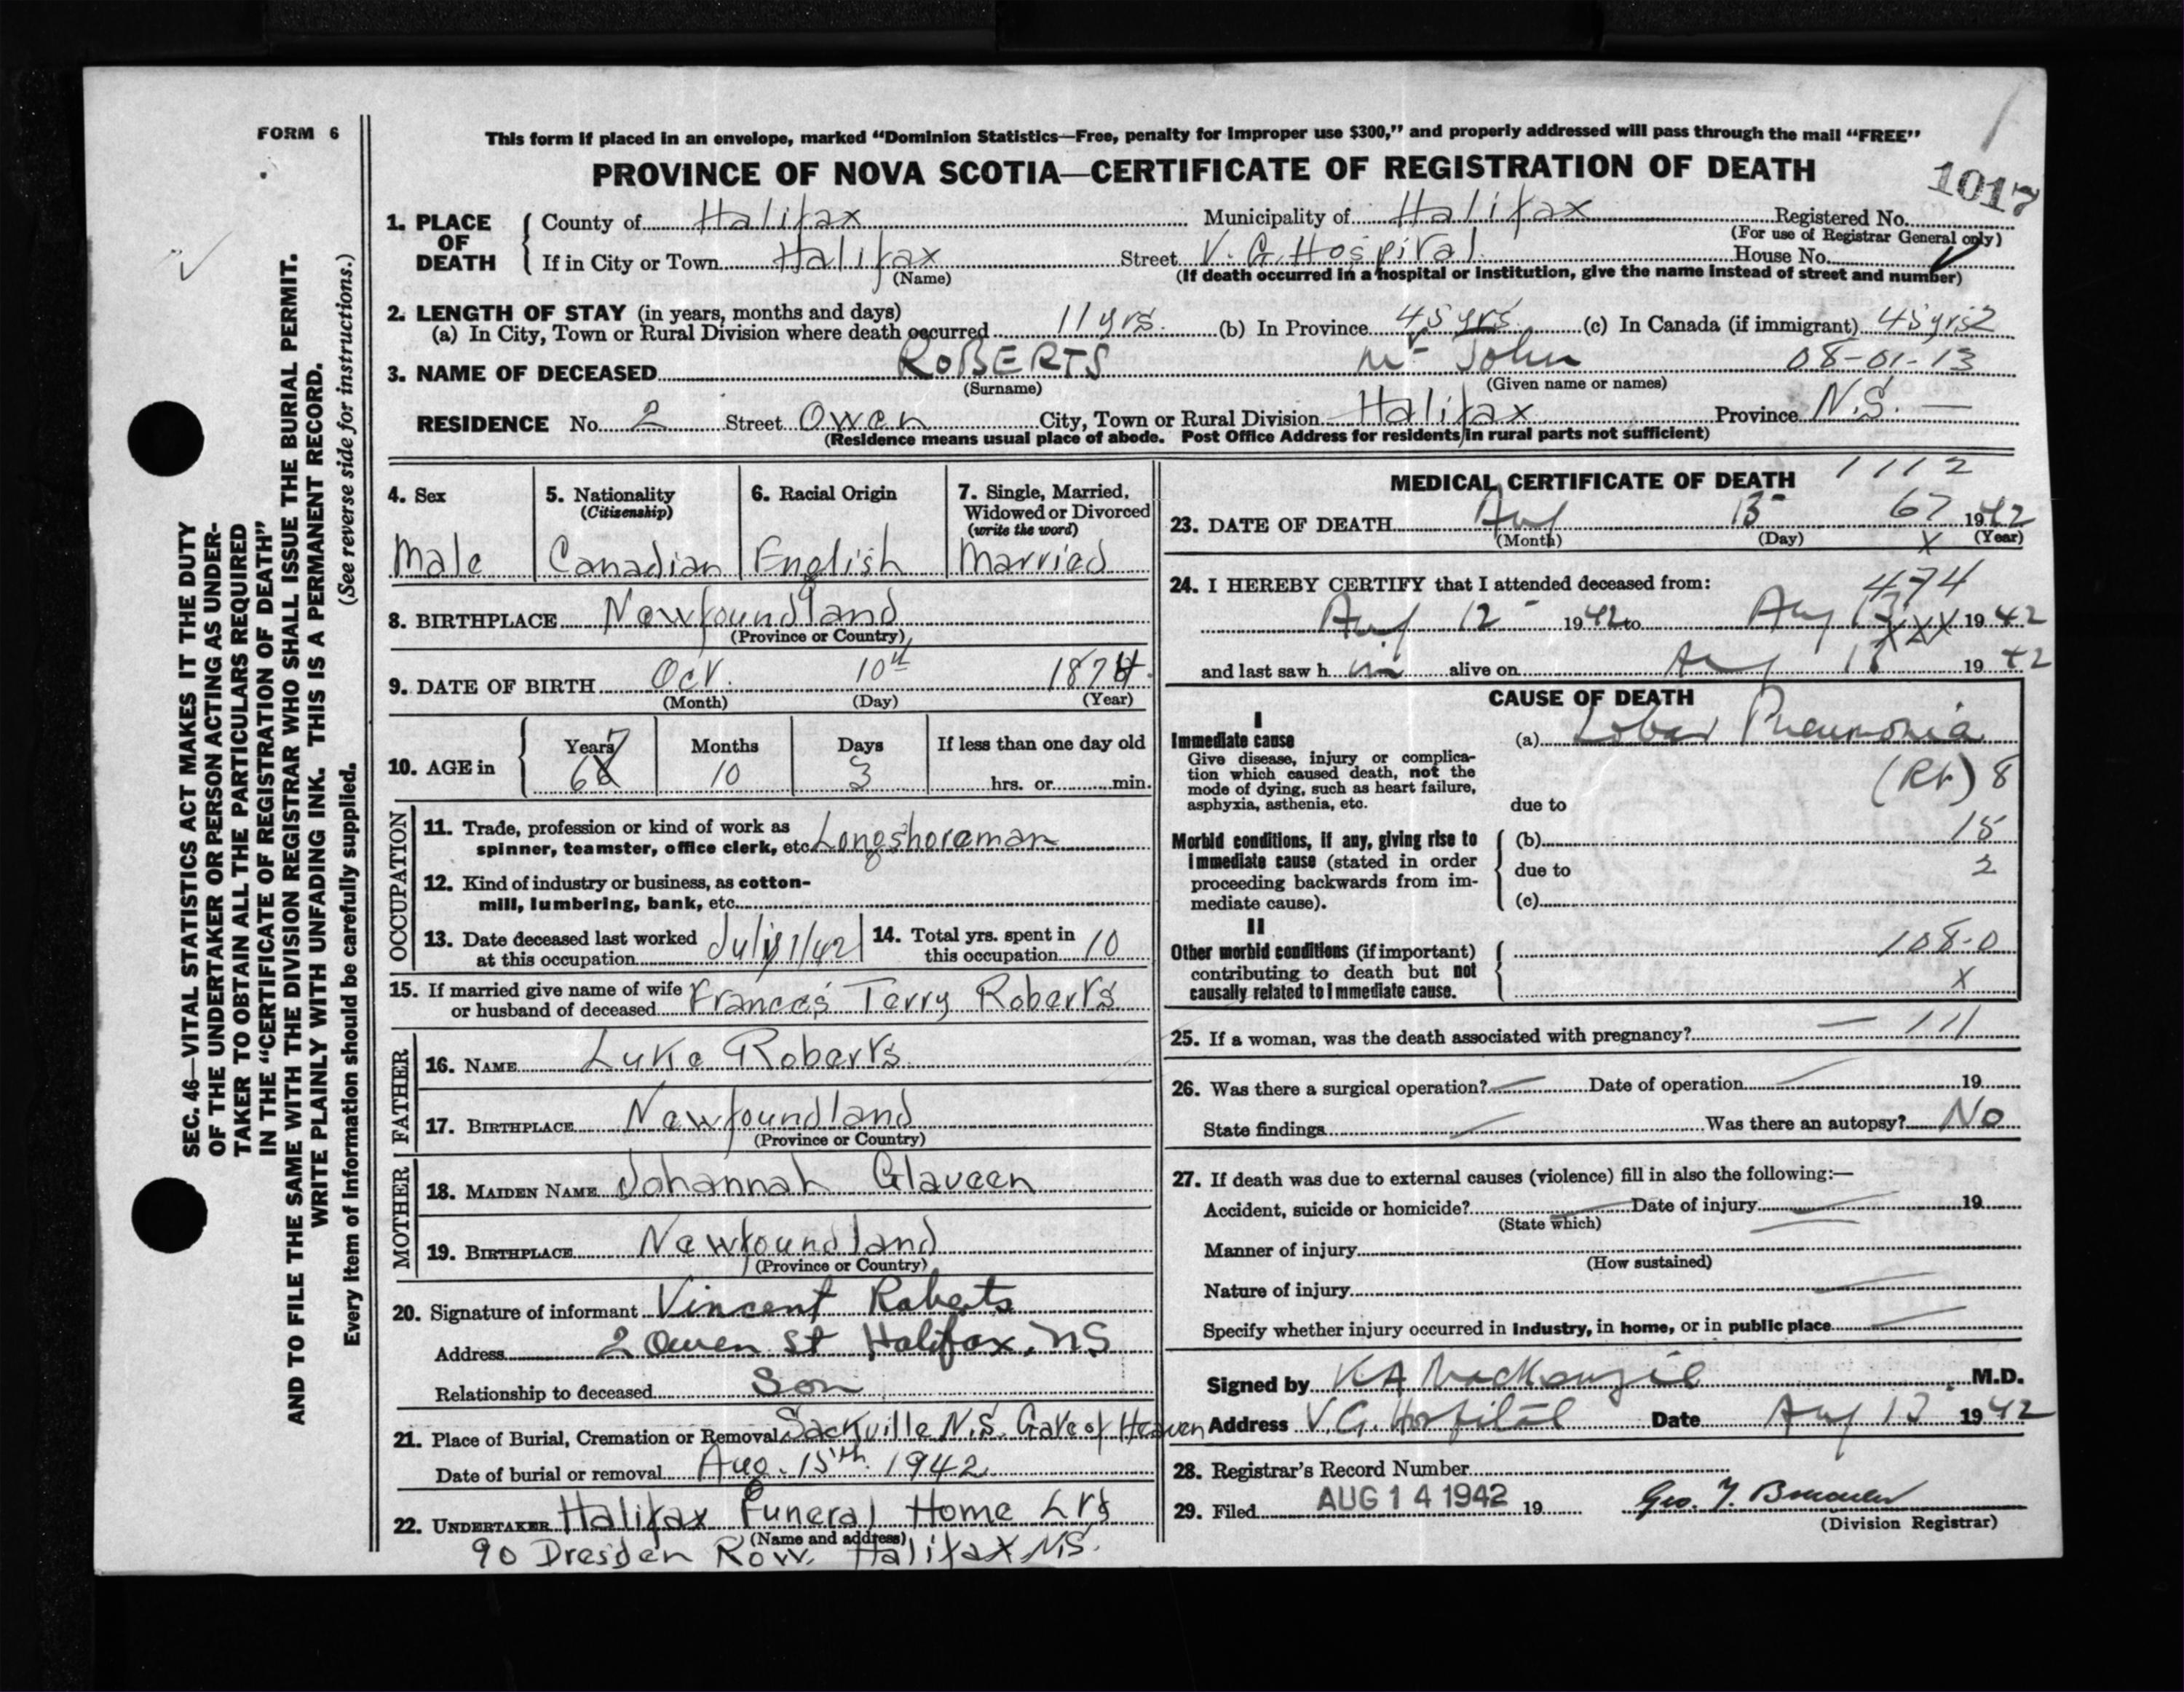 FORM 6
This form if placed in an envelope, marked "Dominion Statistics—Free, penalty for improper use $300," and properly addressed will pass through the mail "FREE"
PROVINCE OF NOVA SCOTIA—CERTIFICATE OF REGISTRATION OF DEATH
1017
1. PLACE OF DEATH County of Halifax Municipality of Halifax Registered No.
(For use of Registrar General only)
If in City or Town Halifax Street V. G. Hospital House No.
(Name) (If death occurred in a hospital or institution, give the name instead of street and number)
2. LENGTH OF STAY (in years, months and days)
(a) In City, Town or Rural Division where death occurred 11 yrs. (b) In Province 45 yrs (c) In Canada (if immigrant) 45 yrs 2
3. NAME OF DECEASED ROBERTS Mr John 08-01-13
(Surname) (Given name or names)
RESIDENCE No. 2 Street Owen City, Town or Rural Division Halifax Province N.S. —
(Residence means usual place of abode. Post Office Address for residents in rural parts not sufficient)
4. Sex
Male
5. Nationality
(Citizenship)
Canadian
6. Racial Origin
English
7. Single, Married,
Widowed or Divorced
(write the word)
Married
8. BIRTHPLACE Newfoundland
(Province or Country)
9. DATE OF BIRTH Oct. 10th 1874
(Month) (Day) (Year)
10. AGE in
Years Months Days If less than one day old
67 10 3 hrs. or min.
OCCUPATION
11. Trade, profession or kind of work as
spinner, teamster, office clerk, etc. Longshoreman
12. Kind of industry or business, as cotton-
mill, lumbering, bank, etc.
13. Date deceased last worked
at this occupation July 1/42
14. Total yrs. spent in
this occupation 10
15. If married give name of wife
or husband of deceased Frances Terry Roberts
FATHER
16. NAME Luke Roberts
17. BIRTHPLACE Newfoundland
(Province or Country)
MOTHER
18. MAIDEN NAME Johannah Glaveen
19. BIRTHPLACE Newfoundland
(Province or Country)
20. Signature of informant Vincent Roberts
Address 2 Owen St Halifax, NS
Relationship to deceased Son
21. Place of Burial, Cremation or Removal Sackville N.S. Gate of Heaven
Date of burial or removal Aug. 15th 1942
22. UNDERTAKER Halifax Funeral Home Ltd
(Name and address)
90 Dresden Row. Halifax N.S.
MEDICAL CERTIFICATE OF DEATH 1112
23. DATE OF DEATH Aug 13 67 1942
(Month) (Day) x (Year)
24. I HEREBY CERTIFY that I attended deceased from: 474
Aug 12 1942 to Aug 13 1942
xxx
and last saw him alive on Aug 1942
CAUSE OF DEATH
I
Immediate cause
Give disease, injury or complica-
tion which caused death, not the
mode of dying, such as heart failure,
asphyxia, asthenia, etc.
(a) Lobar Pneumonia
(Rt) 8
due to
Morbid conditions, if any, giving rise to
immediate cause (stated in order
proceeding backwards from im-
mediate cause).
(b) 15
due to 2
(c)
II
Other morbid conditions (if important)
contributing to death but not
causally related to immediate cause.
108-0
x
25. If a woman, was the death associated with pregnancy? — 111
26. Was there a surgical operation? — Date of operation — 19
State findings — Was there an autopsy? No
27. If death was due to external causes (violence) fill in also the following:—
Accident, suicide or homicide? — Date of injury — 19
(State which)
Manner of injury
(How sustained)
Nature of injury —
Specify whether injury occurred in industry, in home, or in public place —
Signed by K A MacKenzie M.D.
Address V. G. Hospital Date Aug 13 1942
28. Registrar's Record Number
29. Filed AUG 14 1942 19
(Division Registrar)
SEC. 46—VITAL STATISTICS ACT MAKES IT THE DUTY
OF THE UNDERTAKER OR PERSON ACTING AS UNDER-
TAKER TO OBTAIN ALL THE PARTICULARS REQUIRED
IN THE "CERTIFICATE OF REGISTRATION OF DEATH"
AND TO FILE THE SAME WITH THE DIVISION REGISTRAR WHO SHALL ISSUE THE BURIAL PERMIT.
WRITE PLAINLY WITH UNFADING INK. THIS IS A PERMANENT RECORD.
Every item of information should be carefully supplied. (See reverse side for instructions.)